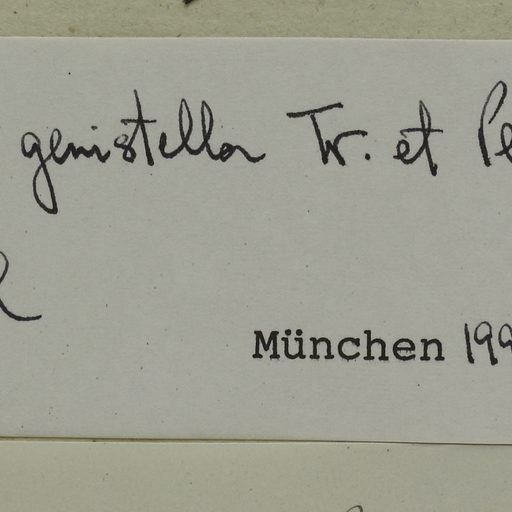 genistella Tr. et Pe
München 199